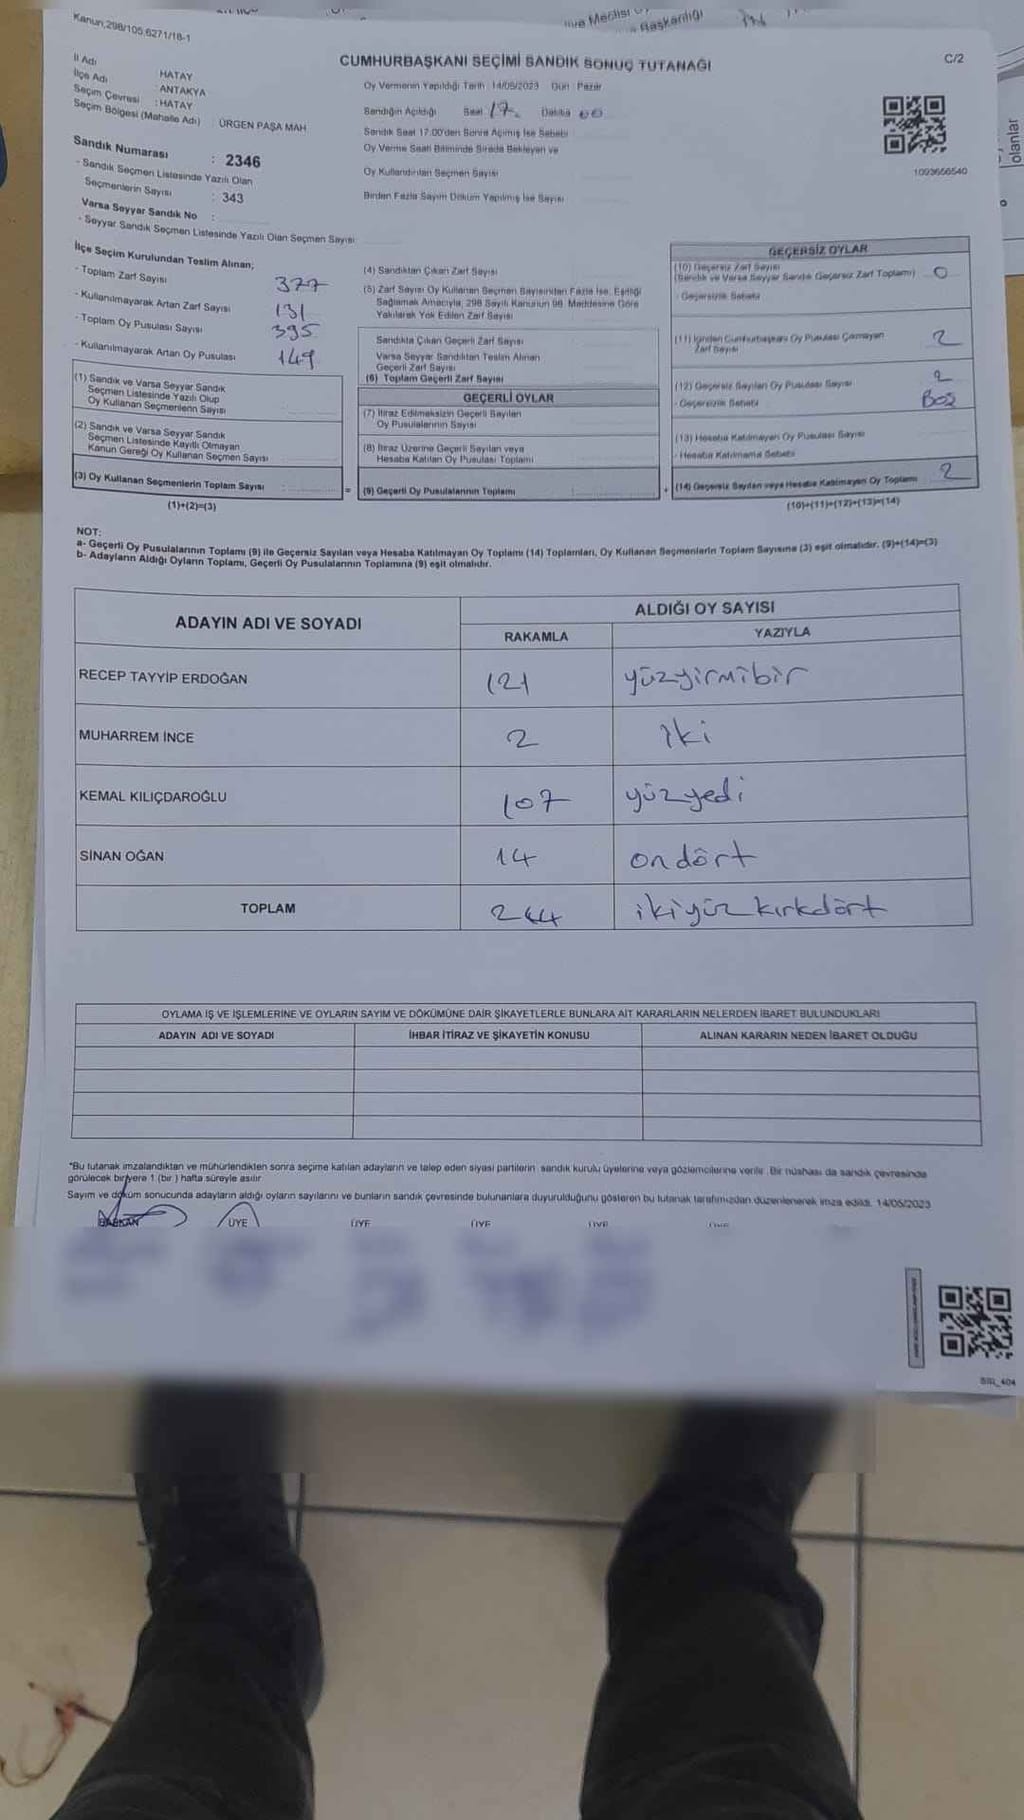 Kanun,298/105,6271/18-1
CUMHURBAŞKANI SEÇİMİ SANDIK SONUÇ TUTANAĞI
C/2
İl Adı : HATAY
İlçe Adı : ANTAKYA
Seçim Çevresi : HATAY
Seçim Bölgesi (Mahalle Adı) : ÜRGEN PAŞA MAH
Oy Vermenin Yapıldığı Tarih : 14/05/2023 Gün : Pazar
Sandığın Açıldığı Saat 17. Dakika 00
Sandık Saat 17.00'den Sonra Açmış İse Sebebi
Oy Verme Saati Bitiminde Sırada Bekleyen ve
Oy Kullandırılan Seçmen Sayısı
Birden Fazla Sayım Döküm Yapılmış İse Sayısı
1093656540
Sandık Numarası : 2346
- Sandık Seçmen Listesinde Yazılı Olan
Seçmenlerin Sayısı : 343
Varsa Seyyar Sandık No :
- Seyyar Sandık Seçmen Listesinde Yazılı Olan Seçmen Sayısı
İlçe Seçim Kurulundan Teslim Alınan;
- Toplam Zarf Sayısı 377
- Kullanılmayarak Artan Zarf Sayısı 131
- Toplam Oy Pusulası Sayısı 395
- Kullanılmayarak Artan Oy Pusulası 149
(1) Sandık ve Varsa Seyyar Sandık
Seçmen Listesinde Yazılı Olup
Oy Kullanan Seçmenlerin Sayısı
(2) Sandık ve Varsa Seyyar Sandık
Seçmen Listesinde Kayıtlı Olmayan
Kanun Gereği Oy Kullanan Seçmen Sayısı
(3) Oy Kullanan Seçmenlerin Toplam Sayısı
(1)+(2)=(3)
(4) Sandıktan Çıkan Zarf Sayısı
(5) Zarf Sayısı Oy Kullanan Seçmen Sayısından Fazla İse, Eşitliği
Sağlamak Amacıyla, 298 Sayılı Kanunun 98. Maddesine Göre
Yakılarak Yok Edilen Zarf Sayısı
Sandıkta Çıkan Geçerli Zarf Sayısı
Varsa Seyyar Sandıktan Teslim Alınan
Geçerli Zarf Sayısı
(6) Toplam Geçerli Zarf Sayısı
GEÇERLİ OYLAR
(7) İtiraz Edilmeksizin Geçerli Sayılan
Oy Pusulalarının Sayısı
(8) İtiraz Üzerine Geçerli Sayılan veya
Hesaba Katılan Oy Pusulası Toplamı
= (9) Geçerli Oy Pusulalarının Toplamı
GEÇERSİZ OYLAR
(10) Geçersiz Zarf Sayısı
(Sandık ve Varsa Seyyar Sandık Geçersiz Zarf Toplamı) 0
- Geçersizlik Sebebi
(11) İçinden Cumhurbaşkanı Oy Pusulası Çıkmayan
Zarf Sayısı 2
(12) Geçersiz Sayılan Oy Pusulası Sayısı 2
- Geçersizlik Sebebi Boş
(13) Hesaba Katılmayan Oy Pusulası Sayısı
- Hesaba Katılmama Sebebi
+ (14) Geçersiz Sayılan veya Hesaba Katılmayan Oy Toplamı 2
(10)+(11)+(12)+(13)=(14)
NOT:
a- Geçerli Oy Pusulalarının Toplamı (9) ile Geçersiz Sayılan veya Hesaba Katılmayan Oy Toplamı (14) Toplamları, Oy Kullanan Seçmenlerin Toplam Sayısına (3) eşit olmalıdır. (9)+(14)=(3)
b- Adayların Aldığı Oyların Toplamı, Geçerli Oy Pusulalarının Toplamına (9) eşit olmalıdır.
ADAYIN ADI VE SOYADI
ALDIĞI OY SAYISI
RAKAMLA YAZIYLA
RECEP TAYYİP ERDOĞAN 121 yüzyirmibir
MUHARREM İNCE 2 iki
KEMAL KILIÇDAROĞLU 107 yüzyedi
SİNAN OĞAN 14 ondört
TOPLAM 244 ikiyüzkırkdört
OYLAMA İŞ VE İŞLEMLERİNE VE OYLARIN SAYIM VE DÖKÜMÜNE DAİR ŞİKAYETLERLE BUNLARA AİT KARARLARIN NELERDEN İBARET BULUNDUKLARI
ADAYIN ADI VE SOYADI İHBAR İTİRAZ VE ŞİKAYETİN KONUSU ALINAN KARARIN NEDEN İBARET OLDUĞU
*Bu tutanak imzalandıktan ve mühürlendikten sonra seçime katılan adayların ve talep eden siyasi partilerin sandık kurulu üyelerine veya gözlemcilerine verilir. Bir nüshası da sandık çevresinde
görülecek bir yere 1 (bir ) hafta süreyle asılır.
Sayım ve döküm sonucunda adayların aldığı oyların sayılarını ve bunların sandık çevresinde bulunanlara duyurulduğunu gösteren bu tutanak tarafımızdan düzenlenerek imza edildi. 14/05/2023
BAŞKAN ÜYE ÜYE ÜYE ÜYE ÜYE
olanlar